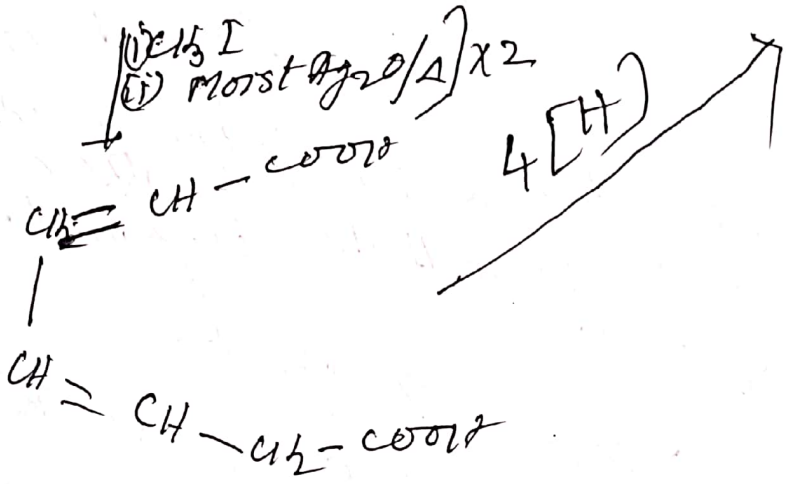 (i) CH3 I
(ii) Moist Ag2O/Δ] x 2
4[H]
CH = CH - COOH
|
CH = CH - CH2 - COOH